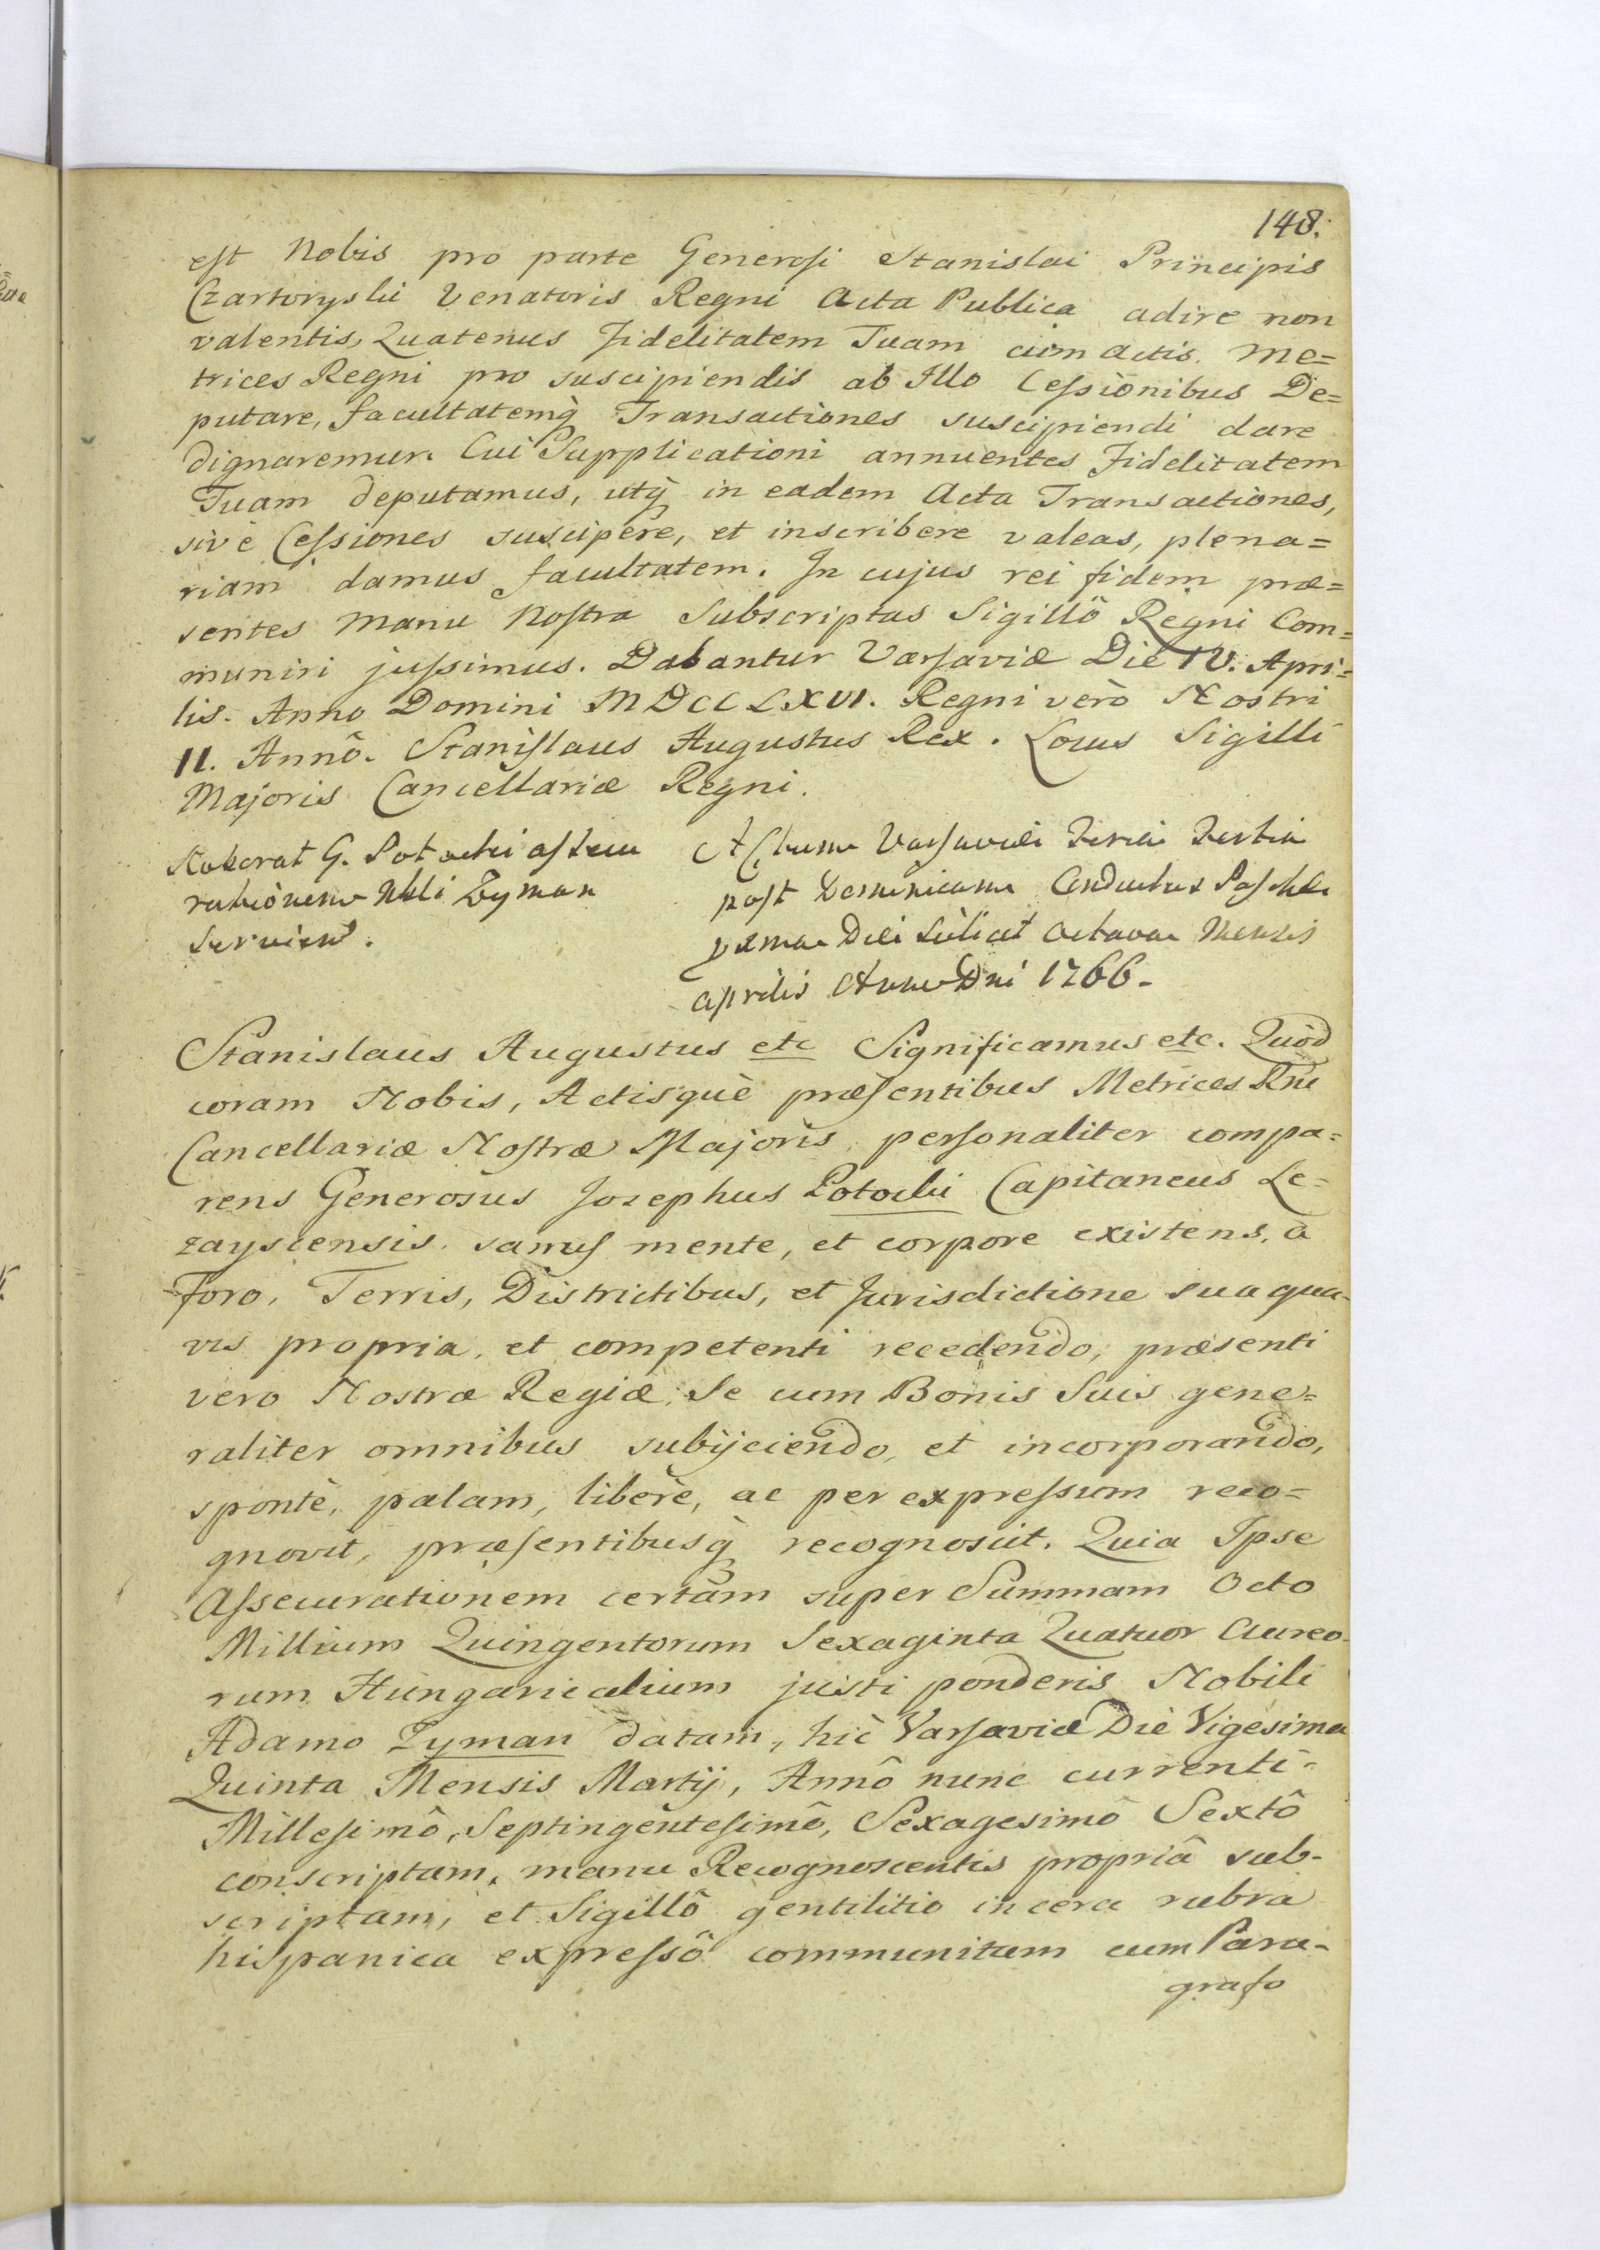 148.
est Nobis pro parte Generosi Stanislai Principis
Czartoryski Venatoris Regni Acta Publica adire non
valentis, Quatenus Fidelitatem Tuam cum Actis Me=
trices Regni pro suscipiendis ab Illo Cessionibus De=
putare, facultatemq̀ Transactiones suscipiendi dare
dignaremur. Cui Supplicationi annuentes Fidelitatem
Tuam deputamus, utq̀ in eadem Acta Transactiones,
sivè Cessiones suscipere, et inscribere valeas, plena=
riam damus facultatem. In cujus rei fidem præ=
sentes Manu Nostra Subscriptas Sigillô Regni Com=
muniri jussimus. Dabantur Varsaviæ Die IV. Apri=
lis. Anno Domini MDCCLXVI. Regni verò Nostri
II. Annô. Stanislaus Augustus Rex. Locus Sigilli
Majoris Cancellariæ Regni.
Roborat G. Potocki assecu
rationem Nbli Zyman
Servient.
Actum Varsaviæ Feria Tertia
post Dominicam Conductus Pascha
prima Die Scilicet Octava Mensis
Aprilis Anno Dni 1766.
Stanislaus Augustus etc Significamus etc. Quòd
coram Nobis, Actisquè præsentibus Metrices Rni
Cancellariæ Nostræ Majoris personaliter compa=
rens Generosus Josephus Potocki Capitaneus Le=
zayscensis sanus mente, et corpore existens, a
Foro, Terris, Districtibus, et Jurisdictione sua qua-
vis propria, et competenti recedendo, præsenti
vero Nostræ Regiæ Se cum Bonis Suis gene=
raliter omnibus subijciendo, et incorporando,
spontè, palam, liberè, ac per expressum reco=
gnovit, præsentibusq̀ recognoscit. Quia Ipse
Assecurationem certam super Summam Octo
Millium Quingentorum Sexaginta Quatuor Aureo-
rum Hungaricalium justi ponderis Nobili
Adamo Zyman datam, hic Varsaviæ Diè Vigesima
Quinta Mensis Martij, Annô nunc currenti
Millesimô, Septingentesimô, Sexagesimô Sextô
conscriptam, manu Recognoscentis propriâ sub-
scriptam, et Sigillô gentilitio in cera rubra
hispanica expressô communitam cum Para-
grafo